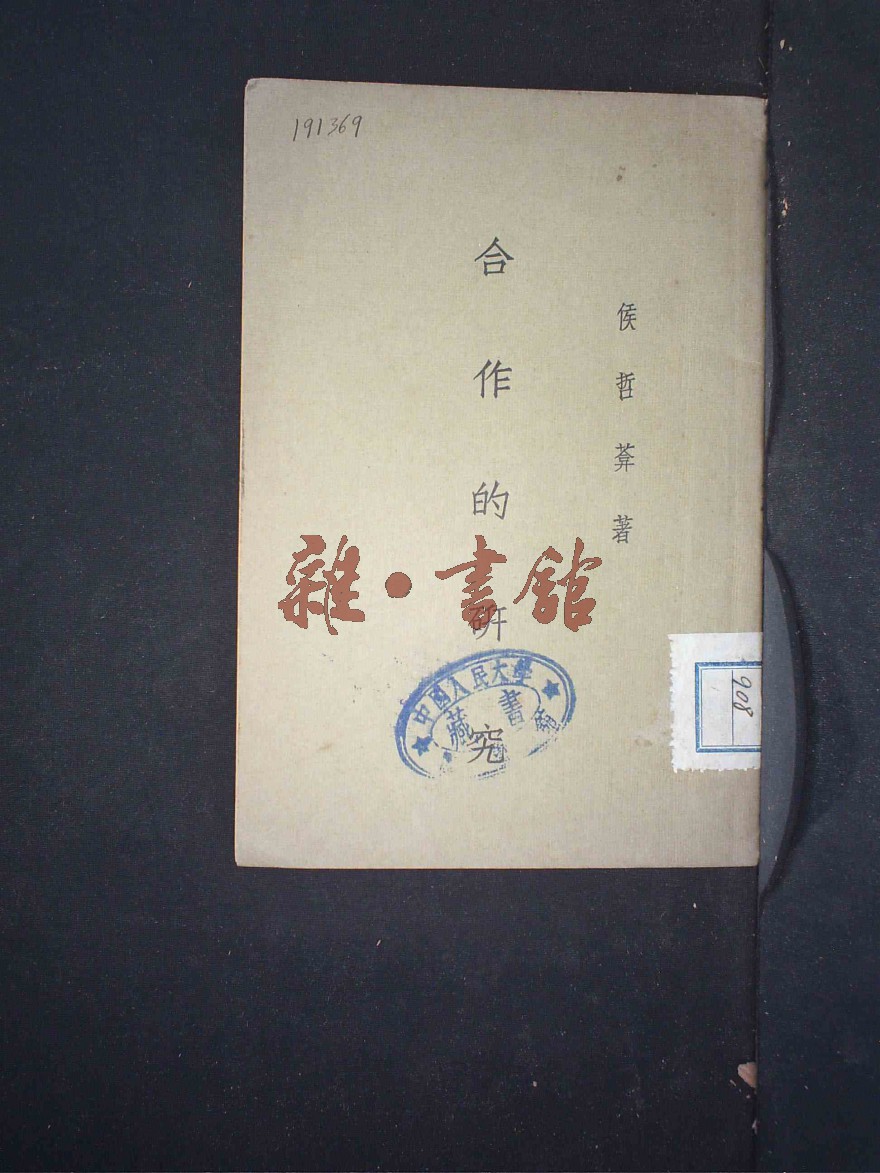 191369
侯哲葊著
合作的研究
雜·書館
中國人民大學
藏書
908